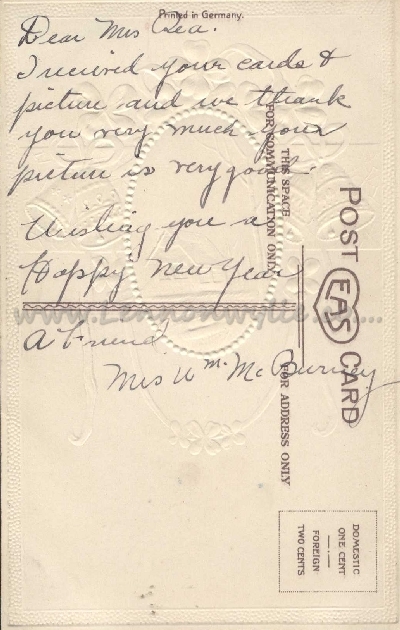 Printed in Germany.
Dear Mrs Rea.
I recieved your cards &
picture and we thank
you very much your
picture is very good.
Wishing you a
Happy New Year
A Friend
Mrs Wm. McBurney
THIS SPACE
FOR COMMUNICATION ONLY
FOR ADDRESS ONLY
POST CARD
EAS
DOMESTIC
ONE CENT
FOREIGN
TWO CENTS